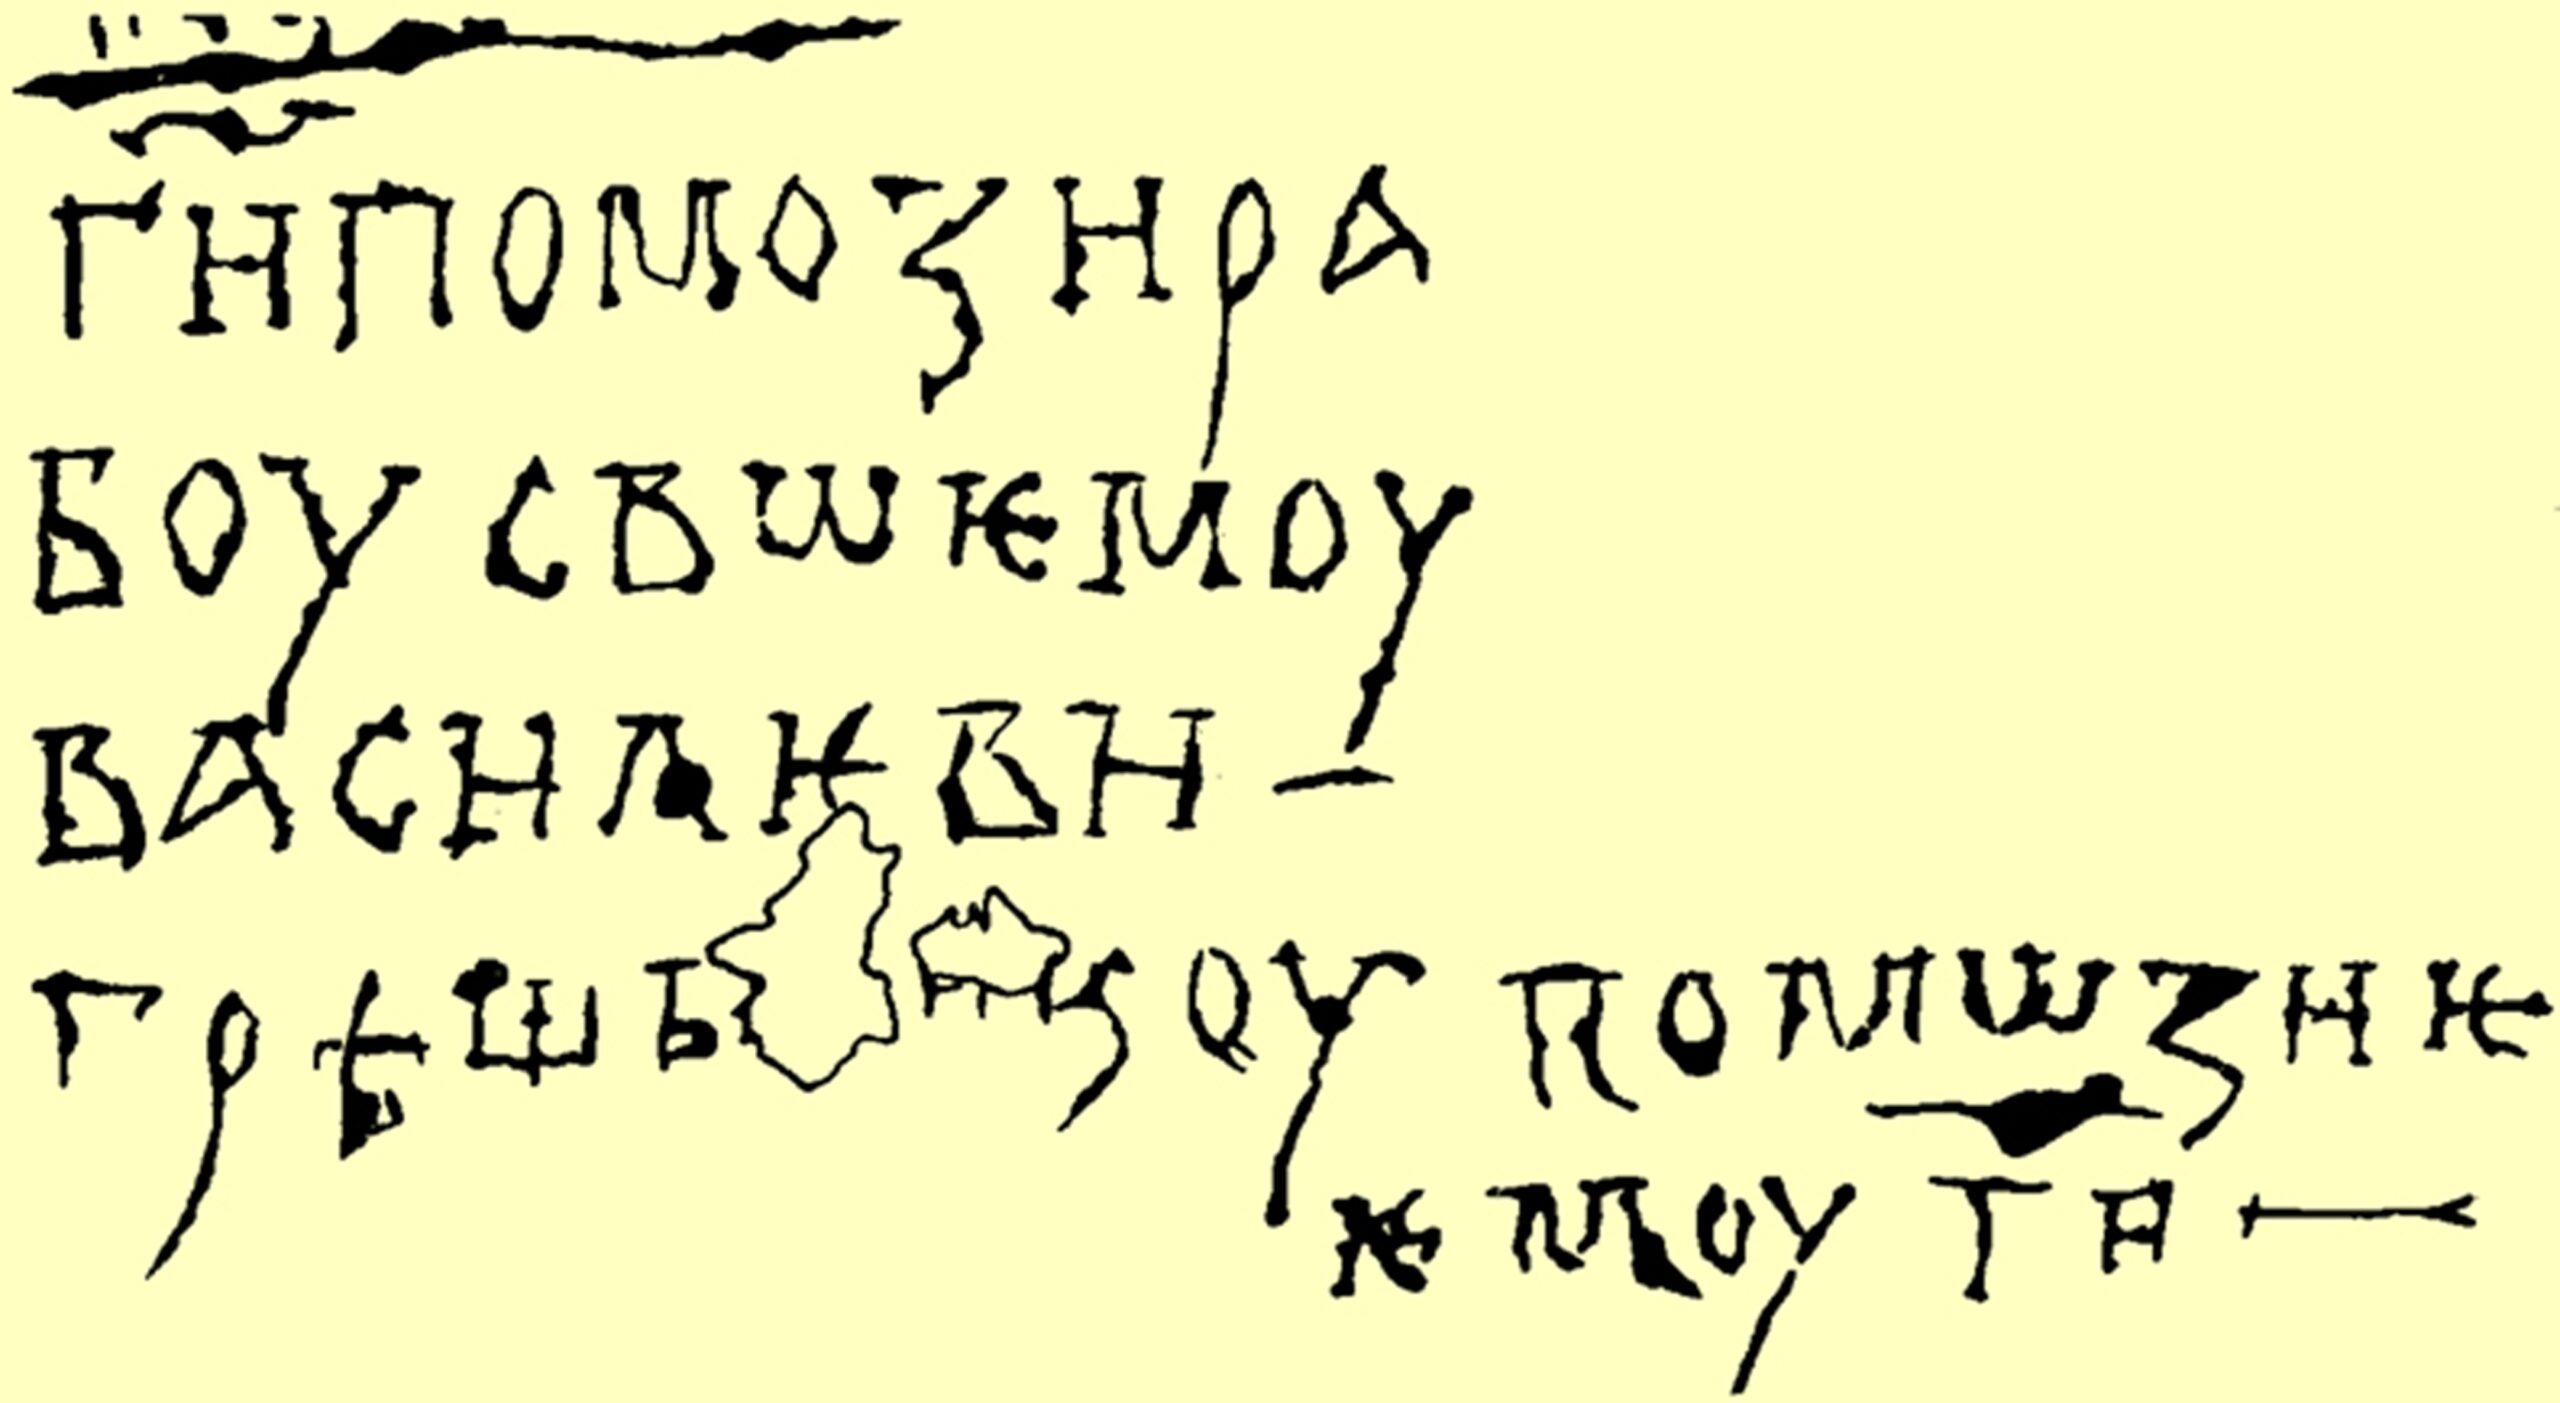 ГН ПОМОЗН РА
БОУ СВѠѤМОУ
ВАСНЛѤВН
ГРѢШЬ НЗОУ ПОМѠЗН Ѥ
ѤМОУ ГН